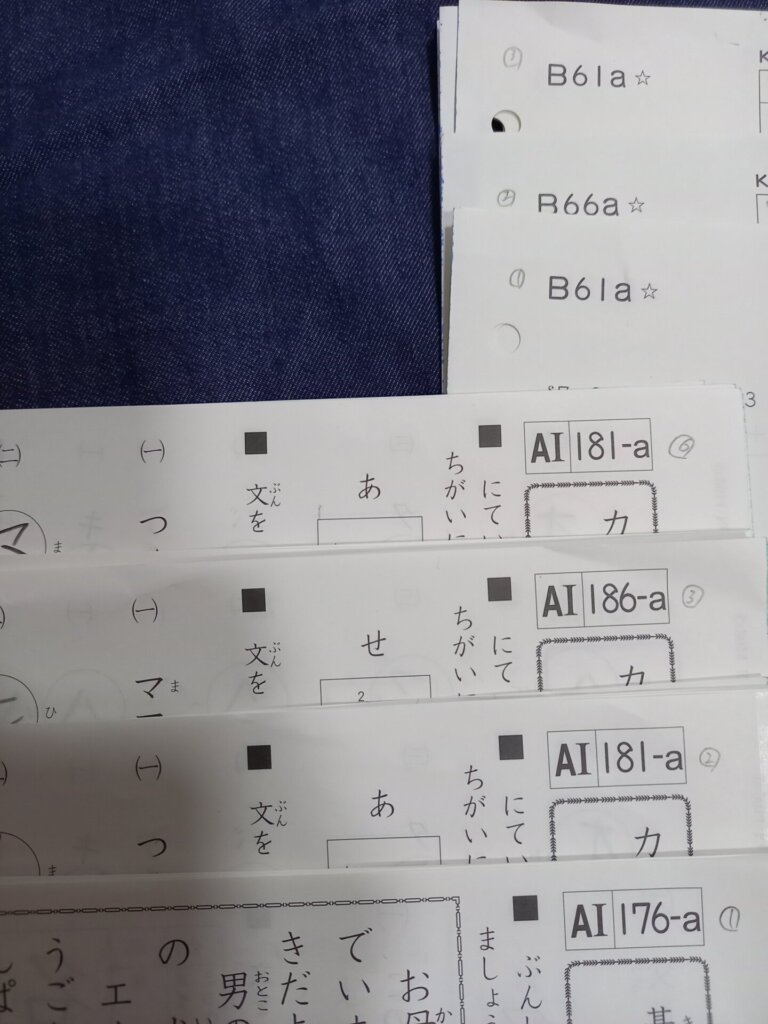 ③ B61a☆
K
② B66a☆
K
① B61a☆
3
AI 181-a ⑥
カ
■ にてい
ちがいに
あ
■ 文を
ぶん
(一) つ
(二) マ
ま
AI 186-a ③
カ
■ にて
ちがいに
せ
2
■ 文を
ぶん
(一) マ
ま
ひ
AI 181-a ②
カ
■ にてい
ちがいに
あ
■ 文を
ぶん
(一) つ
ま
AI 176-a ①
■ ぶん
ましょう
お母
か
でい
きだ
男の
おとこ
の
エ
うご